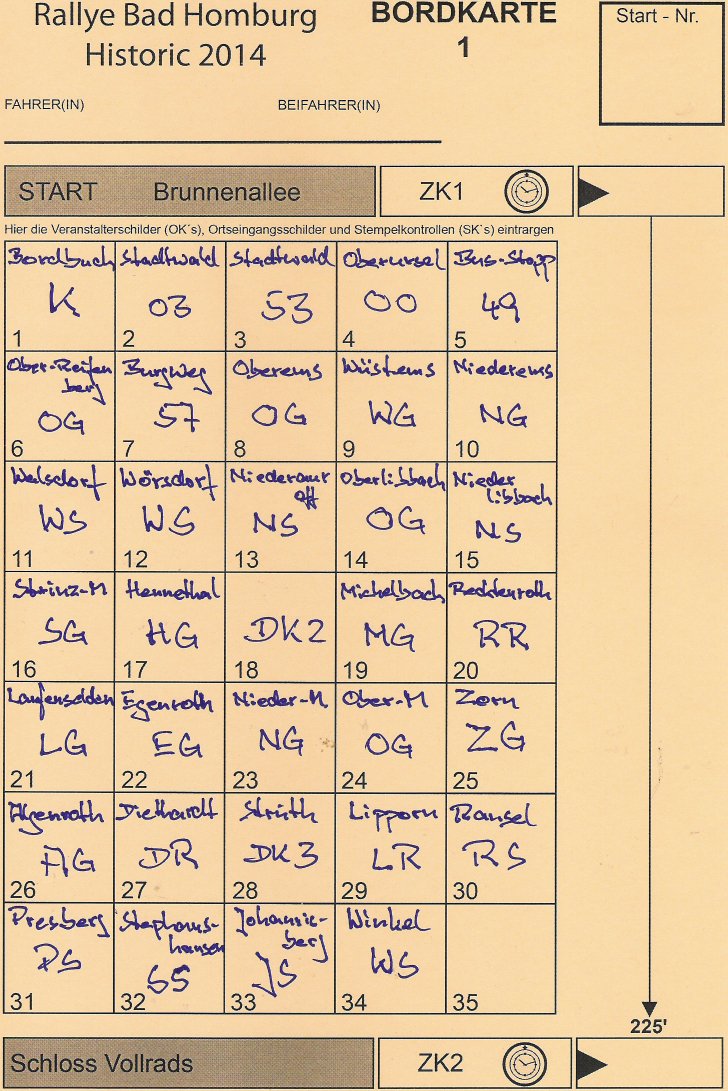 Rallye Bad Homburg
Historic 2014
BORDKARTE
1
Start - Nr.
FAHRER(IN) BEIFAHRER(IN)
START Brunnenallee ZK1
Hier die Veranstalterschilder (OK´s), Ortseingangsschilder und Stempelkontrollen (SK`s) eintrargen
Bordbuch Stadtwald Stadtwald Oberursel Bus-Stopp
K 03 53 OO 49
1 2 3 4 5
Ober-Reifen Burgweg Oberems Wüstems Niederems
berg
OG 57 OG WG NG
6 7 8 9 10
Walsdorf Wörsdorf Niederaur Oberlibbach Nieder
off libbach
WS WS NS OG NS
11 12 13 14 15
Strinz-M Hennethal Michelbach Reckenroth
SG HG DK2 MG RR
16 17 18 19 20
Laufenselden Egenroth Nieder-M Ober-M Zorn
LG EG NG OG ZG
21 22 23 24 25
Algenroth Diethardt Strüth Lipporn Ransel
AG DR DK3 LR RS
26 27 28 29 30
Presberg Stephans- Johannis- Winkel
hausen berg
PS SS JS WS
31 32 33 34 35
225'
Schloss Vollrads ZK2